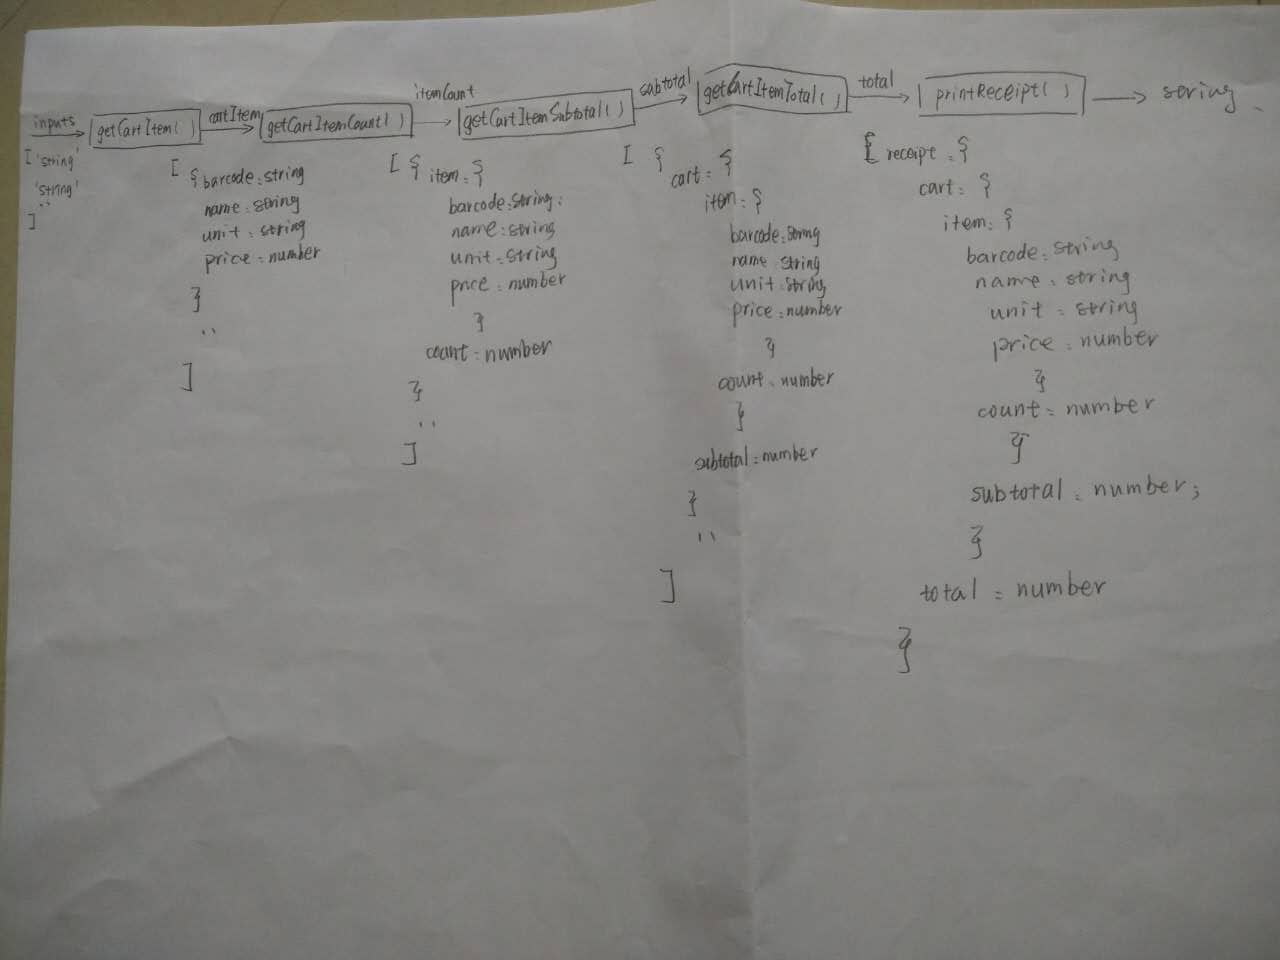 inputs
getCartItem()
cartItem
getCartItemCount()
itemCount
getCartItemSubtotal()
subtotal
getCartItemTotal()
total
printReceipt()
string
['string'
'string'
..
]
[{barcode:string
name:string
unit:string
price:number
}
..
]
[{item:{
barcode:string;
name:string
unit:string
price:number
}
count:number
}
..
]
[{
cart:{
item:{
barcode:string
name:string
unit:string
price:number
}
count:number
}
subtotal:number
}
..
]
receipt:{
cart:{
item:{
barcode:string
name:string
unit:string
price:number
}
count:number
}
subtotal:number;
}
total:number
}